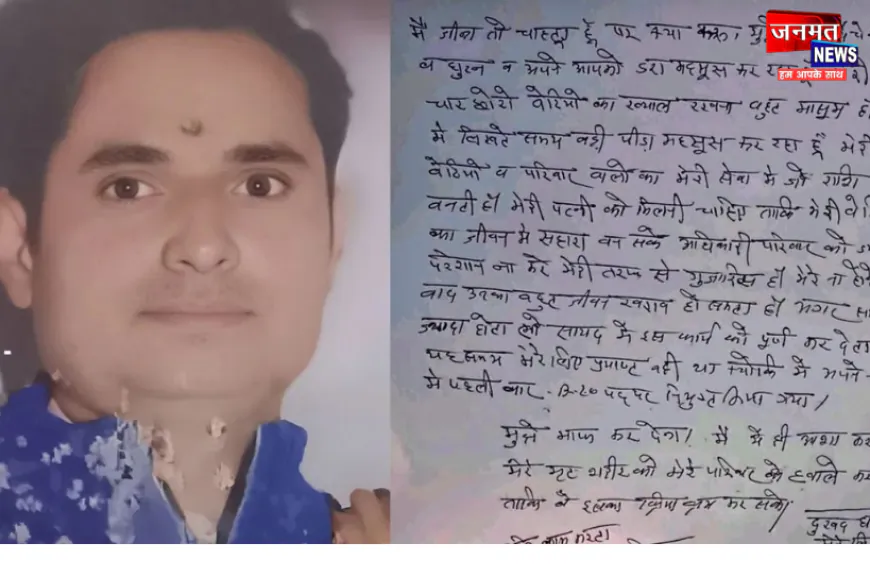 जनमत
NEWS
हम आपके साथ
मै जीना तो चाहता हूँ पर क्या करू।
व घुटन व अपने आपको डरा महसूस कर रहा
चार छोटी बेटियो का ख्याल रखना बहुत मासूम
मे लिखते समय बडी पीडा महसूस कर रहा हूँ मेरी
बेटियो व परिवार वालो का मेरी सेवा मे जो राशि
बनती हो मेरी पत्नी को मिलनी चाहिए ताकि मेरी
का जीवन मे सहारा बन सके अधिकारी परिवार को
परेशान ना करे मेरी तरफ से गुजारिस हो मेरे ना होने
बाद उनका बहुत जीवन खराब हो सकता हो अगर
ज्यादा होता तो सायद मै इस कार्य को पूर्ण कर देता
यह समय मेरे लिए नही था क्योकि मै अपने
मे पहली बार पद पर नियुक्त किया गया।
मुझे माफ कर देना। मै
मेरे मृत शरीर को मेरे परिवार के हवाले
ताकि वे इसका क्रम कर सके।
दुखद